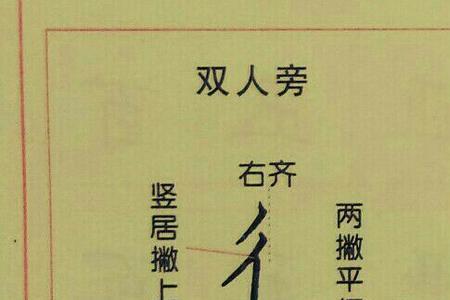 双人旁
右齐
竖居撇上
彳
两撇平